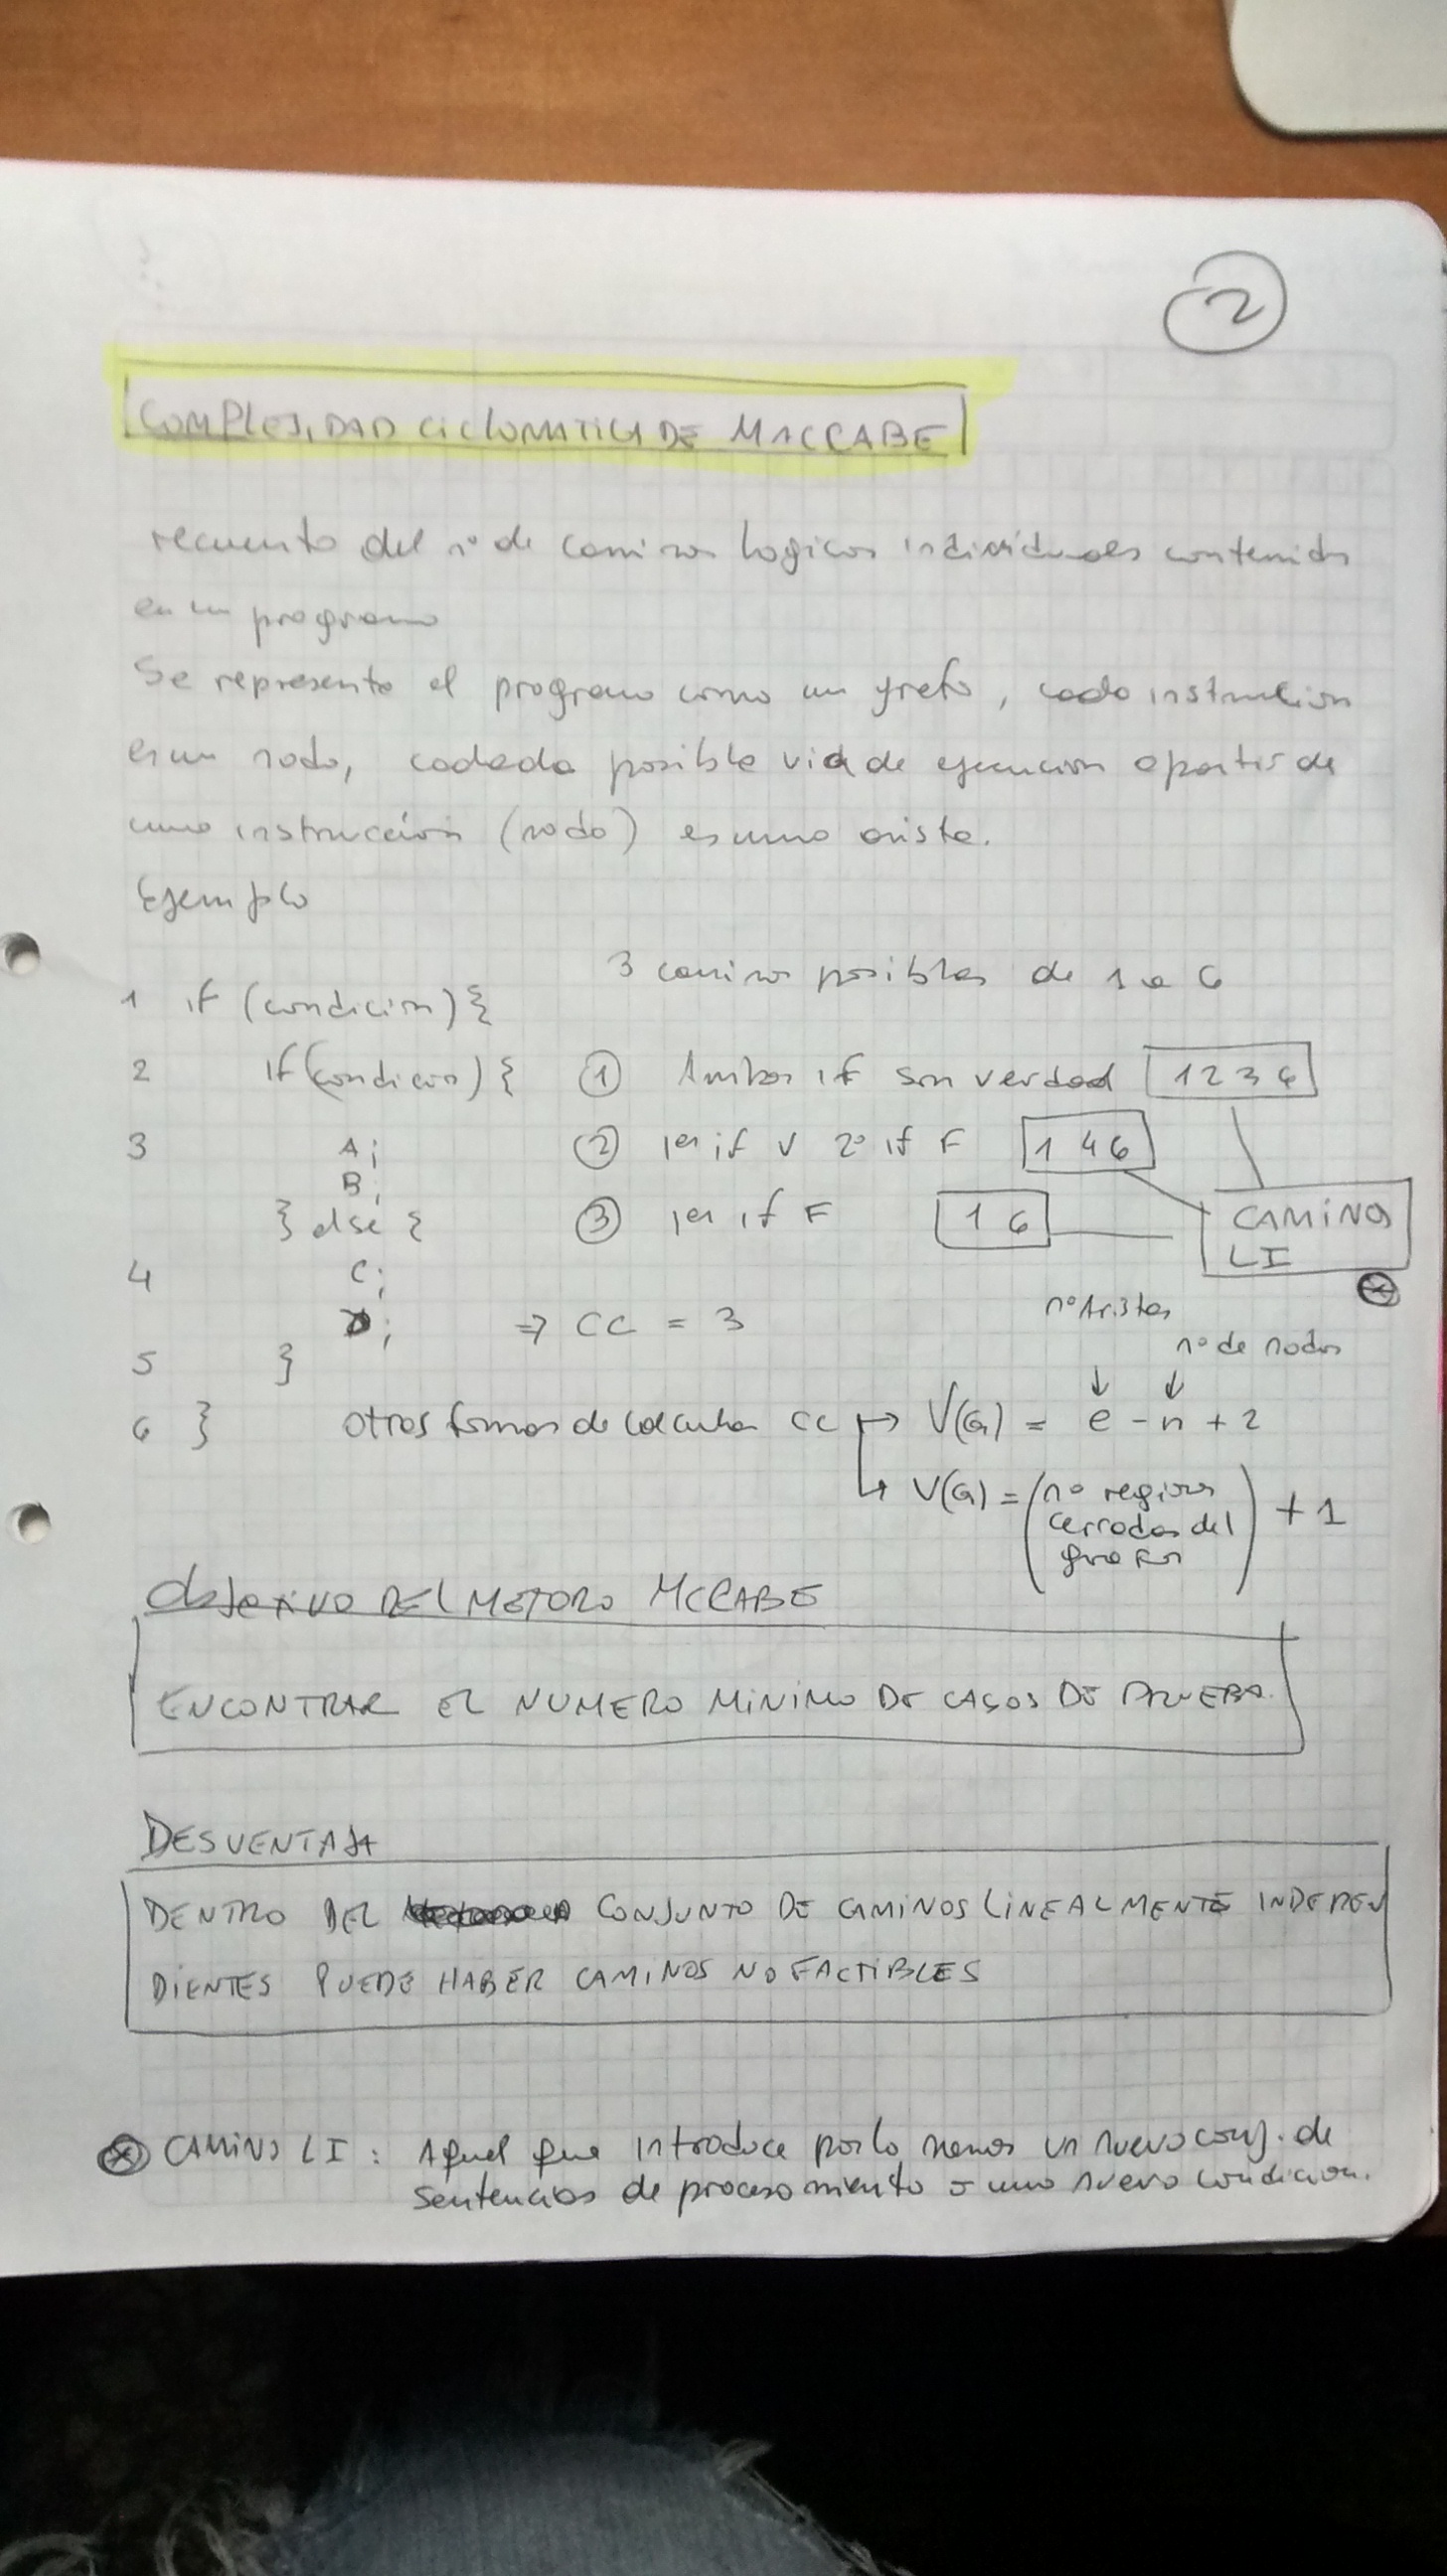 2
COMPLEJIDAD CICLOMATICA DE MACCABE
recuento del nº de caminos logicos individuales contenidos
en un programa
Se representa el programa como un grafo, cada instruccion
es un nodo, cadada posible via de ejecucion a partir de
una instrucción (nodo) es una arista.
Ejemplo
3 caminos posibles de 1 a 6
1 if (condicion) {
2 if (condicion) { ① Ambos if son verdad 1 2 3 6
3 A; ② 1er if V 2º if F 1 4 6
B;
} else { ③ 1er if F 1 6 CAMINOS
LI
4 C;
nº Aristas
D; => CC = 3
nº de nodos
5 }
6 } otras formas de calcular CC ↦ V(G) = e - n + 2
↳ V(G) = (nº regions
cerradas del
grafo) + 1
Objetivo DEL METODO McCABE
ENCONTRAR EL NUMERO MINIMO DE CASOS DE PRUEBA.
DESVENTAJA
DENTRO DEL CONJUNTO DE CAMINOS LINEALMENTE INDEPEN
DIENTES PUEDE HABER CAMINOS NO FACTIBLES
⊗ CAMINO LI: Aquel que introduce por lo menos un nuevo conj. de
sentencias de procesamiento o una nueva condicion.